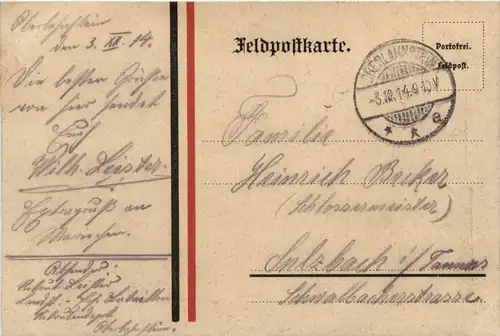 Oberlahnstein
den 3. XII. 14.
Die besten Grüße
von hier sendet
Euch
Wilh. Leister.
Extragruß an
Mariechen.
Absender:
Rekrut Leister
Landst.-
Oberlahnstein.
Feldpostkarte.
Portofrei.
Feldpost.
OBERLAHNSTEIN
-3.12.14.9-10V.
* * a
Familie
Heinrich Becker
(Schlossermeister)
Sulzbach i/Taunus
Schwalbacherstrasse